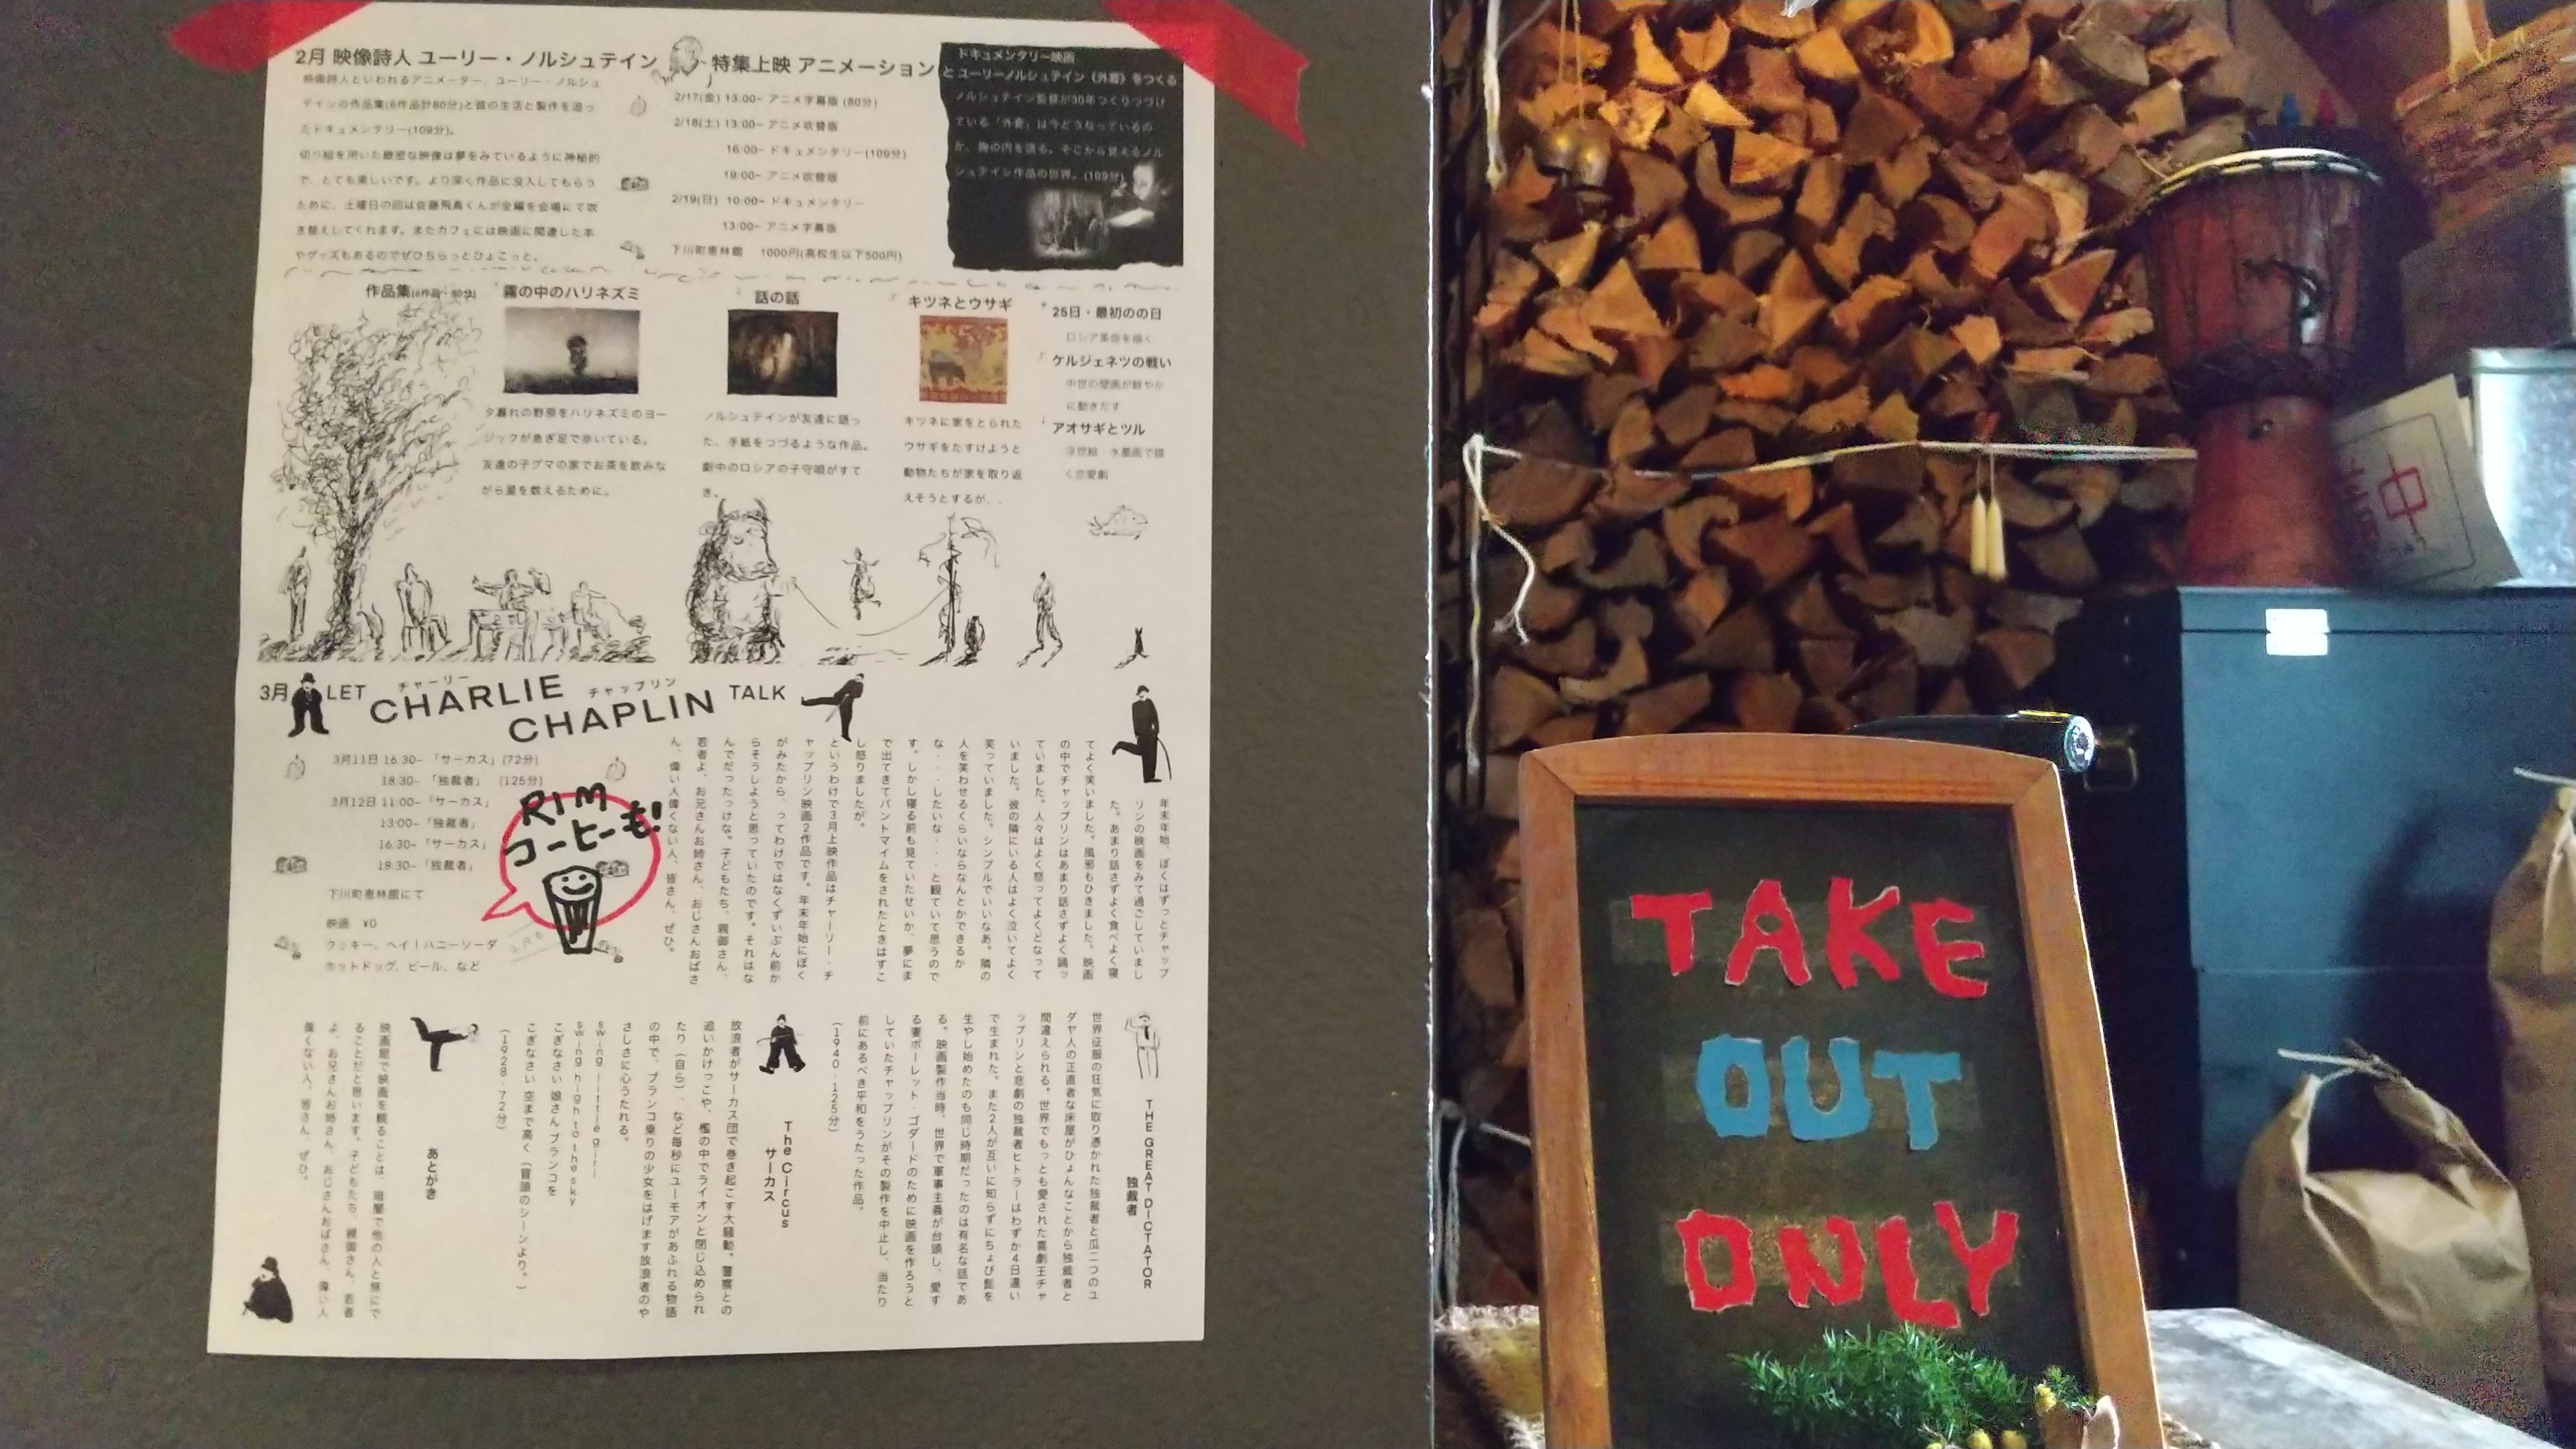 2月 映像詩人 ユーリー・ノルシュテイン 特集上映 アニメーション
映像詩人といわれるアニメーター、ユーリー・ノルシュ
テインの作品集(6作品計80分)と彼の生活と製作を追っ
たドキュメンタリー(109分)。
切り絵を用いた緻密な映像は夢をみているように神秘的
で、とても美しいです。より深く作品に没入してもらう
ために、土曜日の回は佐藤飛鳥くんが全編を会場にて吹
き替えしてくれます。またカフェには映画に関連した本
やグッズもあるのでぜひちらっとひょこっと。
2/17(金) 13:00~ アニメ字幕版 (80分)
2/18(土) 13:00~ アニメ吹替版
16:00~ ドキュメンタリー(109分)
19:00~ アニメ吹替版
2/19(日) 10:00~ ドキュメンタリー
13:00~ アニメ字幕版
下川町恵林館 1000円(高校生以下500円)
ドキュメンタリー映画
と ユーリーノルシュテイン《外套》をつくる
ノルシュテイン監督が30年つくりつづけ
ている「外套」は今どうなっているの
か、胸の内を語る。そこから見えるノル
シュテイン作品の世界。(109分)
作品集(6作品・80分)
霧の中のハリネズミ
夕暮れの野原をハリネズミのヨー
ジックが急ぎ足で歩いている。
友達の子グマの家でお茶を飲みな
がら星を数えるために。
話の話
ノルシュテインが友達に語っ
た、手紙をつづるような作品。
劇中のロシアの子守唄がすて
き。
キツネとウサギ
キツネに家をとられた
ウサギをたすけようと
動物たちが家を取り返
えそうとするが、.
25日・最初のの日
ロシア革命を描く
ケルジェネツの戦い
中世の壁画が鮮やか
に動きだす
アオサギとツル
浮世絵・水墨画で描
く恋愛劇
3月 LET CHARLIE CHAPLIN TALK
チャーリー チャップリン
3月11日 16:30~ 「サーカス」(72分)
18:30~ 「独裁者」 (125分)
3月12日 11:00~「サーカス」
13:00~「独裁者」
16:30~「サーカス」
18:30~「独裁者」
下川町恵林館にて
映画 ¥0
クッキー、ヘイ！ハニーソーダ
ホットドッグ、ビール、など
RIM
コーヒーも!
年末年始、ぼくはずっとチャップ
リンの映画をみて過ごしていまし
た。あまり話さずよく食べよく寝
てよく笑いました。風邪もひきました。映画
の中でチャップリンはあまり話さずよく踊っ
ていました。人々はよく怒ってよくどなって
いました。彼の隣にいる人はよく泣いてよく
笑っていました。シンプルでいいなあ。隣の
人を笑わせるくらいならなんとかできるか
な・・・したいな・・・と観ていて思うので
す。しかし寝る前も見ていたせいか、夢にま
で出てきてパントマイムをされたときはすこ
し怒りましたが。
というわけで3月上映作品はチャーリー・チ
ャップリン映画2作品です。年末年始にぼく
がみたから、ってわけではなくずいぶん前か
らそうしようと思っていたのです。それはな
んでだったっけな。子どもたち、親御さん、
若者よ、お兄さんお姉さん、おじさんおばさ
ん、偉い人偉くない人、皆さん、ぜひ。
THE GREAT DICTATOR
独裁者
世界征服の狂気に取り憑かれた独裁者と瓜二つのユ
ダヤ人の正直者な床屋がひょんなことから独裁者と
間違えられる。世界でもっとも愛された喜劇王チャ
ップリンと悲劇の独裁者ヒトラーはわずか4日違い
で生まれた。また2人が互いに知らずにちょび髭を
生やし始めたのも同じ時期だったのは有名な話であ
る。映画製作当時、世界で軍事主義が台頭し、愛す
る妻ポーレット・ゴダードのために映画を作ろうと
していたチャップリンがその製作を中止し、当たり
前にあるべき平和をうたった作品。
(1940・125分)
The Circus
サーカス
放浪者がサーカス団で巻き起こす大騒動。警察との
追いかけっこや、檻の中でライオンと閉じ込められ
たり（自ら）、など毎秒にユーモアがあふれる物語
の中で、ブランコ乗りの少女をはげます放浪者のや
さしさに心うたれる。
swing little girl
swing high to the sky
こぎなさい 娘さん ブランコを
こぎなさい 空まで高く（冒頭のシーンより。）
(1928・72分)
あとがき
映画館で映画を観ることは、暗闇で他の人と無にで
ることだと思います。子どもたち、親御さん、若者
よ、お兄さんお姉さん、おじさんおばさん、偉い人
偉くない人、皆さん、ぜひ。
TAKE
OUT
ONLY
中